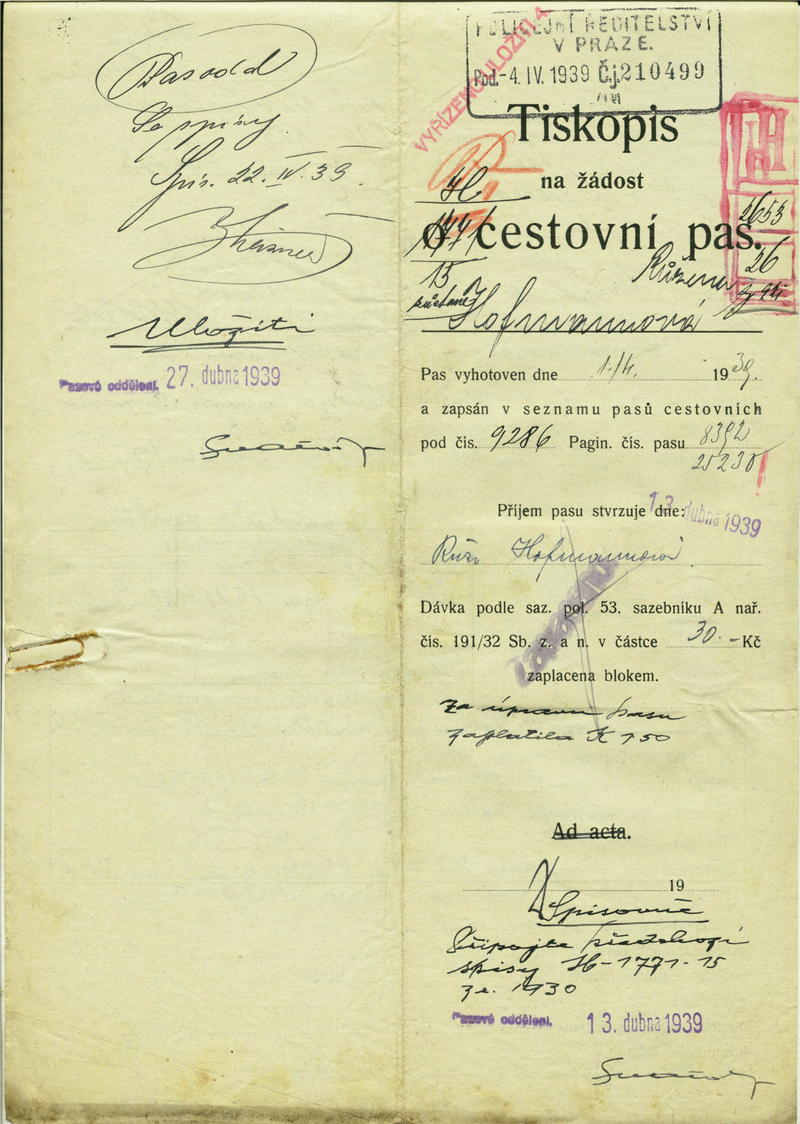 Pas. odd.
Se spisy.
Spis. 22. IV. 39.
Uložiti
Pasové oddělení. 27. dubna 1939
POLICEJNÍ ŘEDITELSTVÍ
V PRAZE.
Pod. -4. IV. 1939 Č.j. 210499
VYŘÍZENO ULOŽITI
Tiskopis
na žádost
o cestovní pas.
H
1771
15
2653
26
Růžena
Hofmannová
Pas vyhotoven dne 1./4. 1939.
a zapsán v seznamu pasů cestovních
pod čís. 9286 Pagin. čís. pasu 8392
25230
Příjem pasu stvrzuje dne: 13. dubna 1939
Růž. Hofmannová
Dávka podle saz. pol. 53. sazebníku A nař.
čís. 191/32 Sb. z. a n. v částce 30.- Kč
zaplacena blokem.
Za úpravu pasu
zaplatila K 150
Ad acta.
19
Spisovně
Připojte předchozí
spisy H-1771-15
z r. 1930
Pasové oddělení. 13. dubna 1939